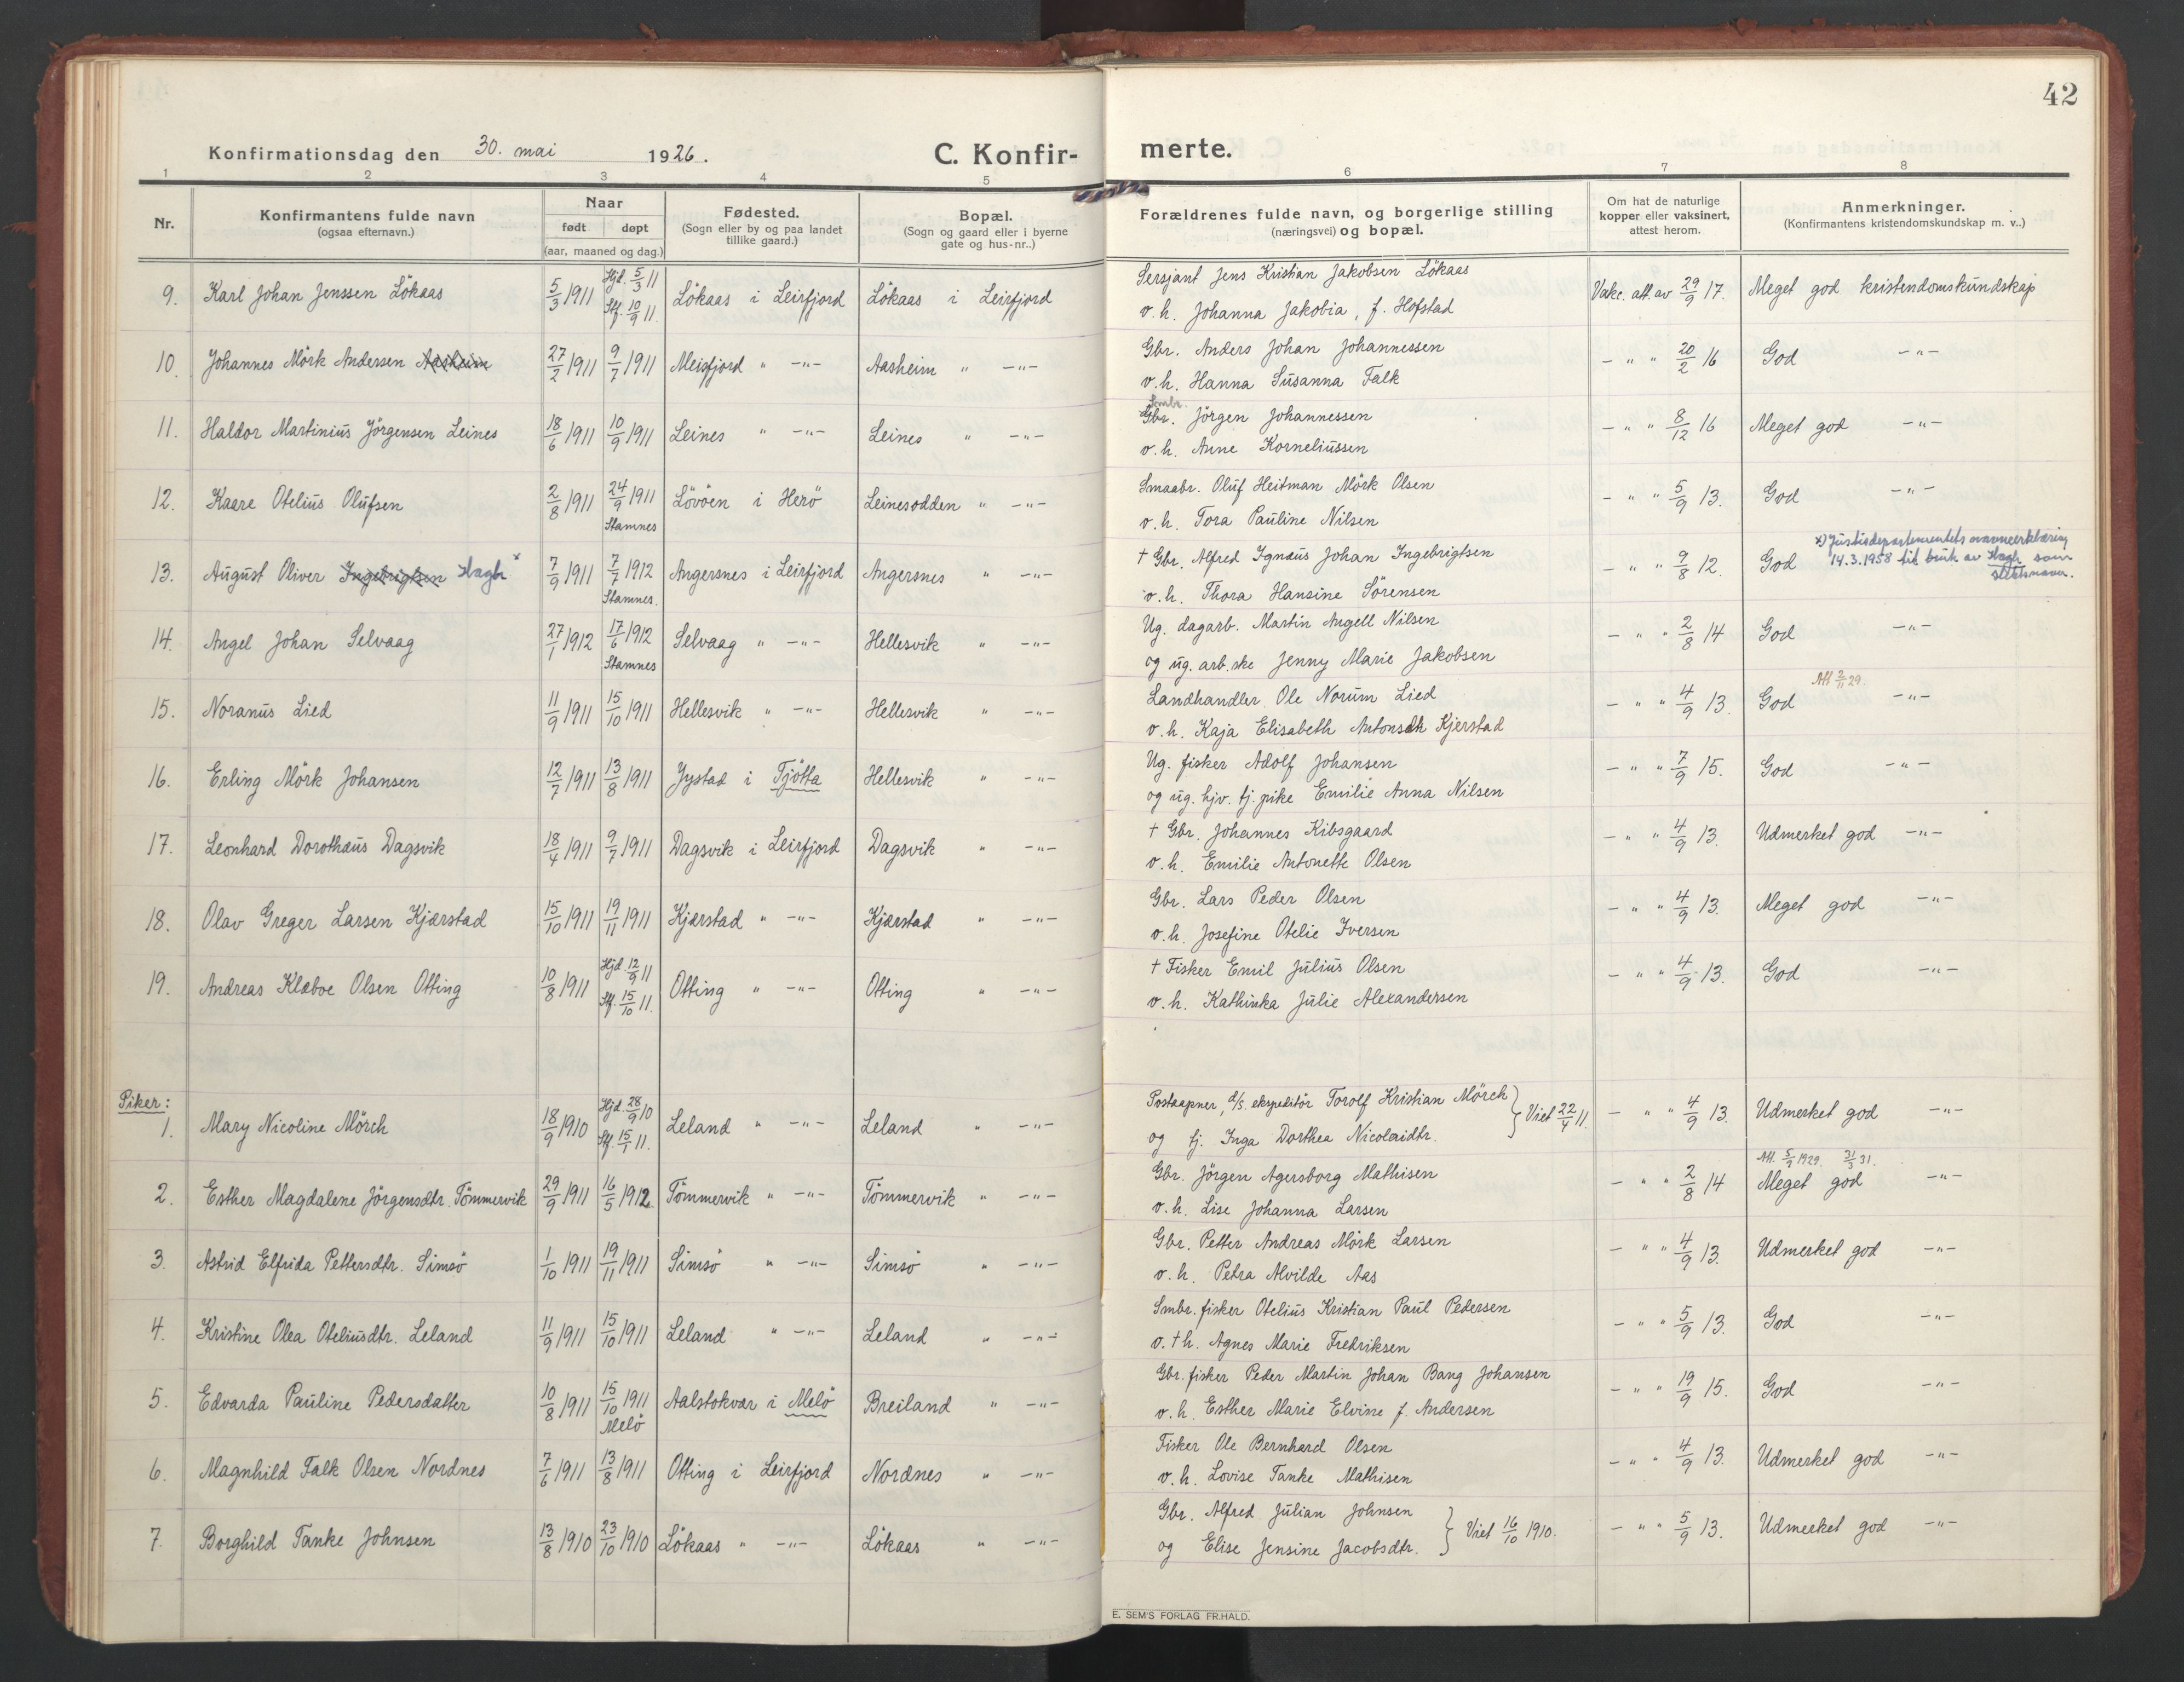 42
Konfirmationsdag den 30. mai 1926. C. Konfir- merte.
1 2 3 4 5 6 7 8
Nr. Konfirmantens fulde navn (ogsaa efternavn.) Naar født døpt (aar, maaned og dag.) Fødested. (Sogn eller by og paa landet tillike gaard.) Bopæl. (Sogn og gaard eller i byerne gate og hus-nr..) Forældrenes fulde navn, og borgerlige stilling (næringsvei) og bopæl. Om hat de naturlige kopper eller vaksinert, attest herom. Anmerkninger. (Konfirmantens kristendomskundskap m. v..)
9. Karl Johan Jenssen Lökaas 5/3 1911 Hjd. 5/3 11 Stf. 10/9 11. Lökaas i Leirfjord Lökaas i Leirfjord Sersjant Jens Kristian Jakobsen Lökaas Vakc. att. av 29/9 17. Meget god kristendomskundskap
o. h. Johanna Jakobia, f. Hofstad
10. Johannes Mörk Andersen Aasheim 27/2 1911 9/7 1911 Meisfjord " -"- Aasheim " -"- Gbr. Anders Johan Johannessen - " " 20/2 16 God -"-
o. h. Hanna Susanna Falk
11. Haldor Martinius Jörgensen Leines 18/6 1911 10/9 1911 Leines " -"- Leines " -"- Smbr. Gbr. Jörgen Johannessen - " " 8/12 16 Meget god -"-
o. h. Anne Korneliussen
12. Kaare Otelius Olufsen 2/8 1911 24/9 1911 Stamnes Lövöen i Herö Leinesodden " -"- Smaabr. Oluf Heitman Mörk Olsen - " " 5/9 13. God -"-
o. h. Tora Pauline Nilsen
13. August Oliver Ingebrigtsen Hagbr x 7/9 1911 7/7 1912 Stamnes. Angersnes i Leirfjord Angersnes " -"- † Gbr. Alfred Ignæus Johan Ingebrigtsen - " " 9/8 12. God x) Justisdepartementets navneerklæring 14.3.1958 til bruk av Hagbr som slektsnavn.
o. h. Thora Hansine Sörensen
14. Angel Johan Selvaag 27/1 1912 17/6 1912 Stamnes Selvaag " -"- Hellesvik " -"- Ug. dagarb. Martin Angell Nilsen - " " 2/8 14 God -"-
og ug. arb.ske Jenny Marie Jakobsen
15. Noranus Lied 11/9 1911 15/10 1911 Hellesvik " -"- Hellesvik " -"- Landhandler Ole Norum Lied - " " 4/9 13. God Att 2/11 29. -"-
o. h. Kaja Elisabeth Antonsdtr Kjerstad
16. Erling Mörk Johansen 12/7 1911 13/8 1911 Jystad i Tjötta Hellesvik " -"- Ug. fisker Adolf Johansen - " " 7/9 15. God -"-
og ug. hjv. tj. pike Emilie Anna Nilsen
17. Leonhard Dorothæus Dagsvik 18/4 1911 9/7 1911 Dagsvik i Leirfjord Dagsvik " -"- † Gbr. Johannes Kibsgaard - " " 4/9 13. Udmerket god -"-
o. h. Emilie Antonette Olsen
18. Olav Greger Larsen Kjærstad 15/10 1911 19/11 1911 Kjærstad " -"- Kjærstad " -"- Gbr. Lars Peder Olsen - " " 4/9 13. Meget god -"-
o. h. Josefine Otelie Iversen
19. Andreas Klæboe Olsen Otting 10/8 1911 Hjd. 12/9 11 Stf. 15/10 11. Otting " -"- Otting " -"- † Fisker Emil Julius Olsen - " " 4/9 13. God -"-
o. h. Kathinka Julie Alexandersen
Piker:
1. Mary Nicoline Mörch 18/9 1910 Hjd. 28/9 10 Stf. 15/1 11. Leland " -"- Leland " -"- Postaapner, d/s. ekspeditör Torolf Kristian Mörch } Viet 22/4 11. - " " 4/9 13. Udmerket god -"-
og fj. Inga Dorthea Nicolaidtr.
2. Esther Magdalene Jörgensdtr. Tömmervik 29/9 1911 16/5 1912 Tömmervik " -"- Tömmervik " -"- Gbr. Jörgen Agersborg Mathisen - " " 2/8 14 Att. 5/9 1929. 31/3 31. Meget god -"-
o. h. Lise Johanna Larsen
3. Astrid Elfrida Pettersdtr. Simsö 1/10 1911 19/11 1911 Simsö " -"- Simsö " -"- Gbr. Petter Andreas Mörk Larsen - " " 4/9 13. Udmerket god -"-
o. h. Petra Alvilde Aas
4. Kristine Olea Oteliusdtr. Leland 11/9 1911 15/10 1911 Leland " -"- Leland " -"- Smbr. fisker Otelius Kristian Paul Pedersen - " " 5/9 13. God -"-
o. † h. Agnes Marie Fredriksen
5. Edvarda Pauline Pedersdatter 10/8 1911 15/10 1911 Melö Aalstokvær i Melö Breiland " -"- Gbr. fisker Peder Martin Johan Bang Johansen - " " 19/9 15. God -"-
o. h. Esther Marie Elvine f. Andersen
6. Magnhild Falk Olsen Nordnes 7/6 1911 13/8 1911 Otting i Leirfjord Nordnes " -"- Fisker Ole Bernhard Olsen - " " 4/9 13. Udmerket god -"-
o. h. Lovise Tanke Mathisen
7. Borghild Tanke Johnsen 13/8 1910 23/10 1910 Lökaas " -"- Lökaas " -"- Gbr. Alfred Julian Johnsen } Viet 16/10 1910. - " " 5/9 13. Udmerket god -"-
og Elise Jensine Jacobsdtr.
E. SEM'S FORLAG FR.HALD.